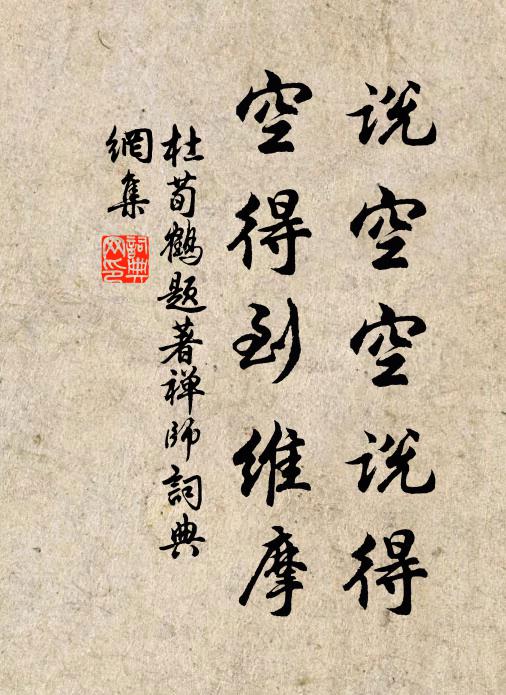 说空空说得
空得到维摩
杜荀鶴题著禅師詞典
網集
詞典網印